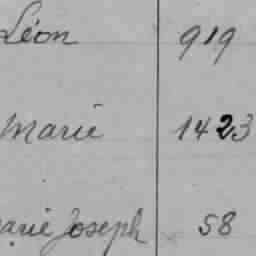 Léon 919
Marie 1423
Marie Joseph 58